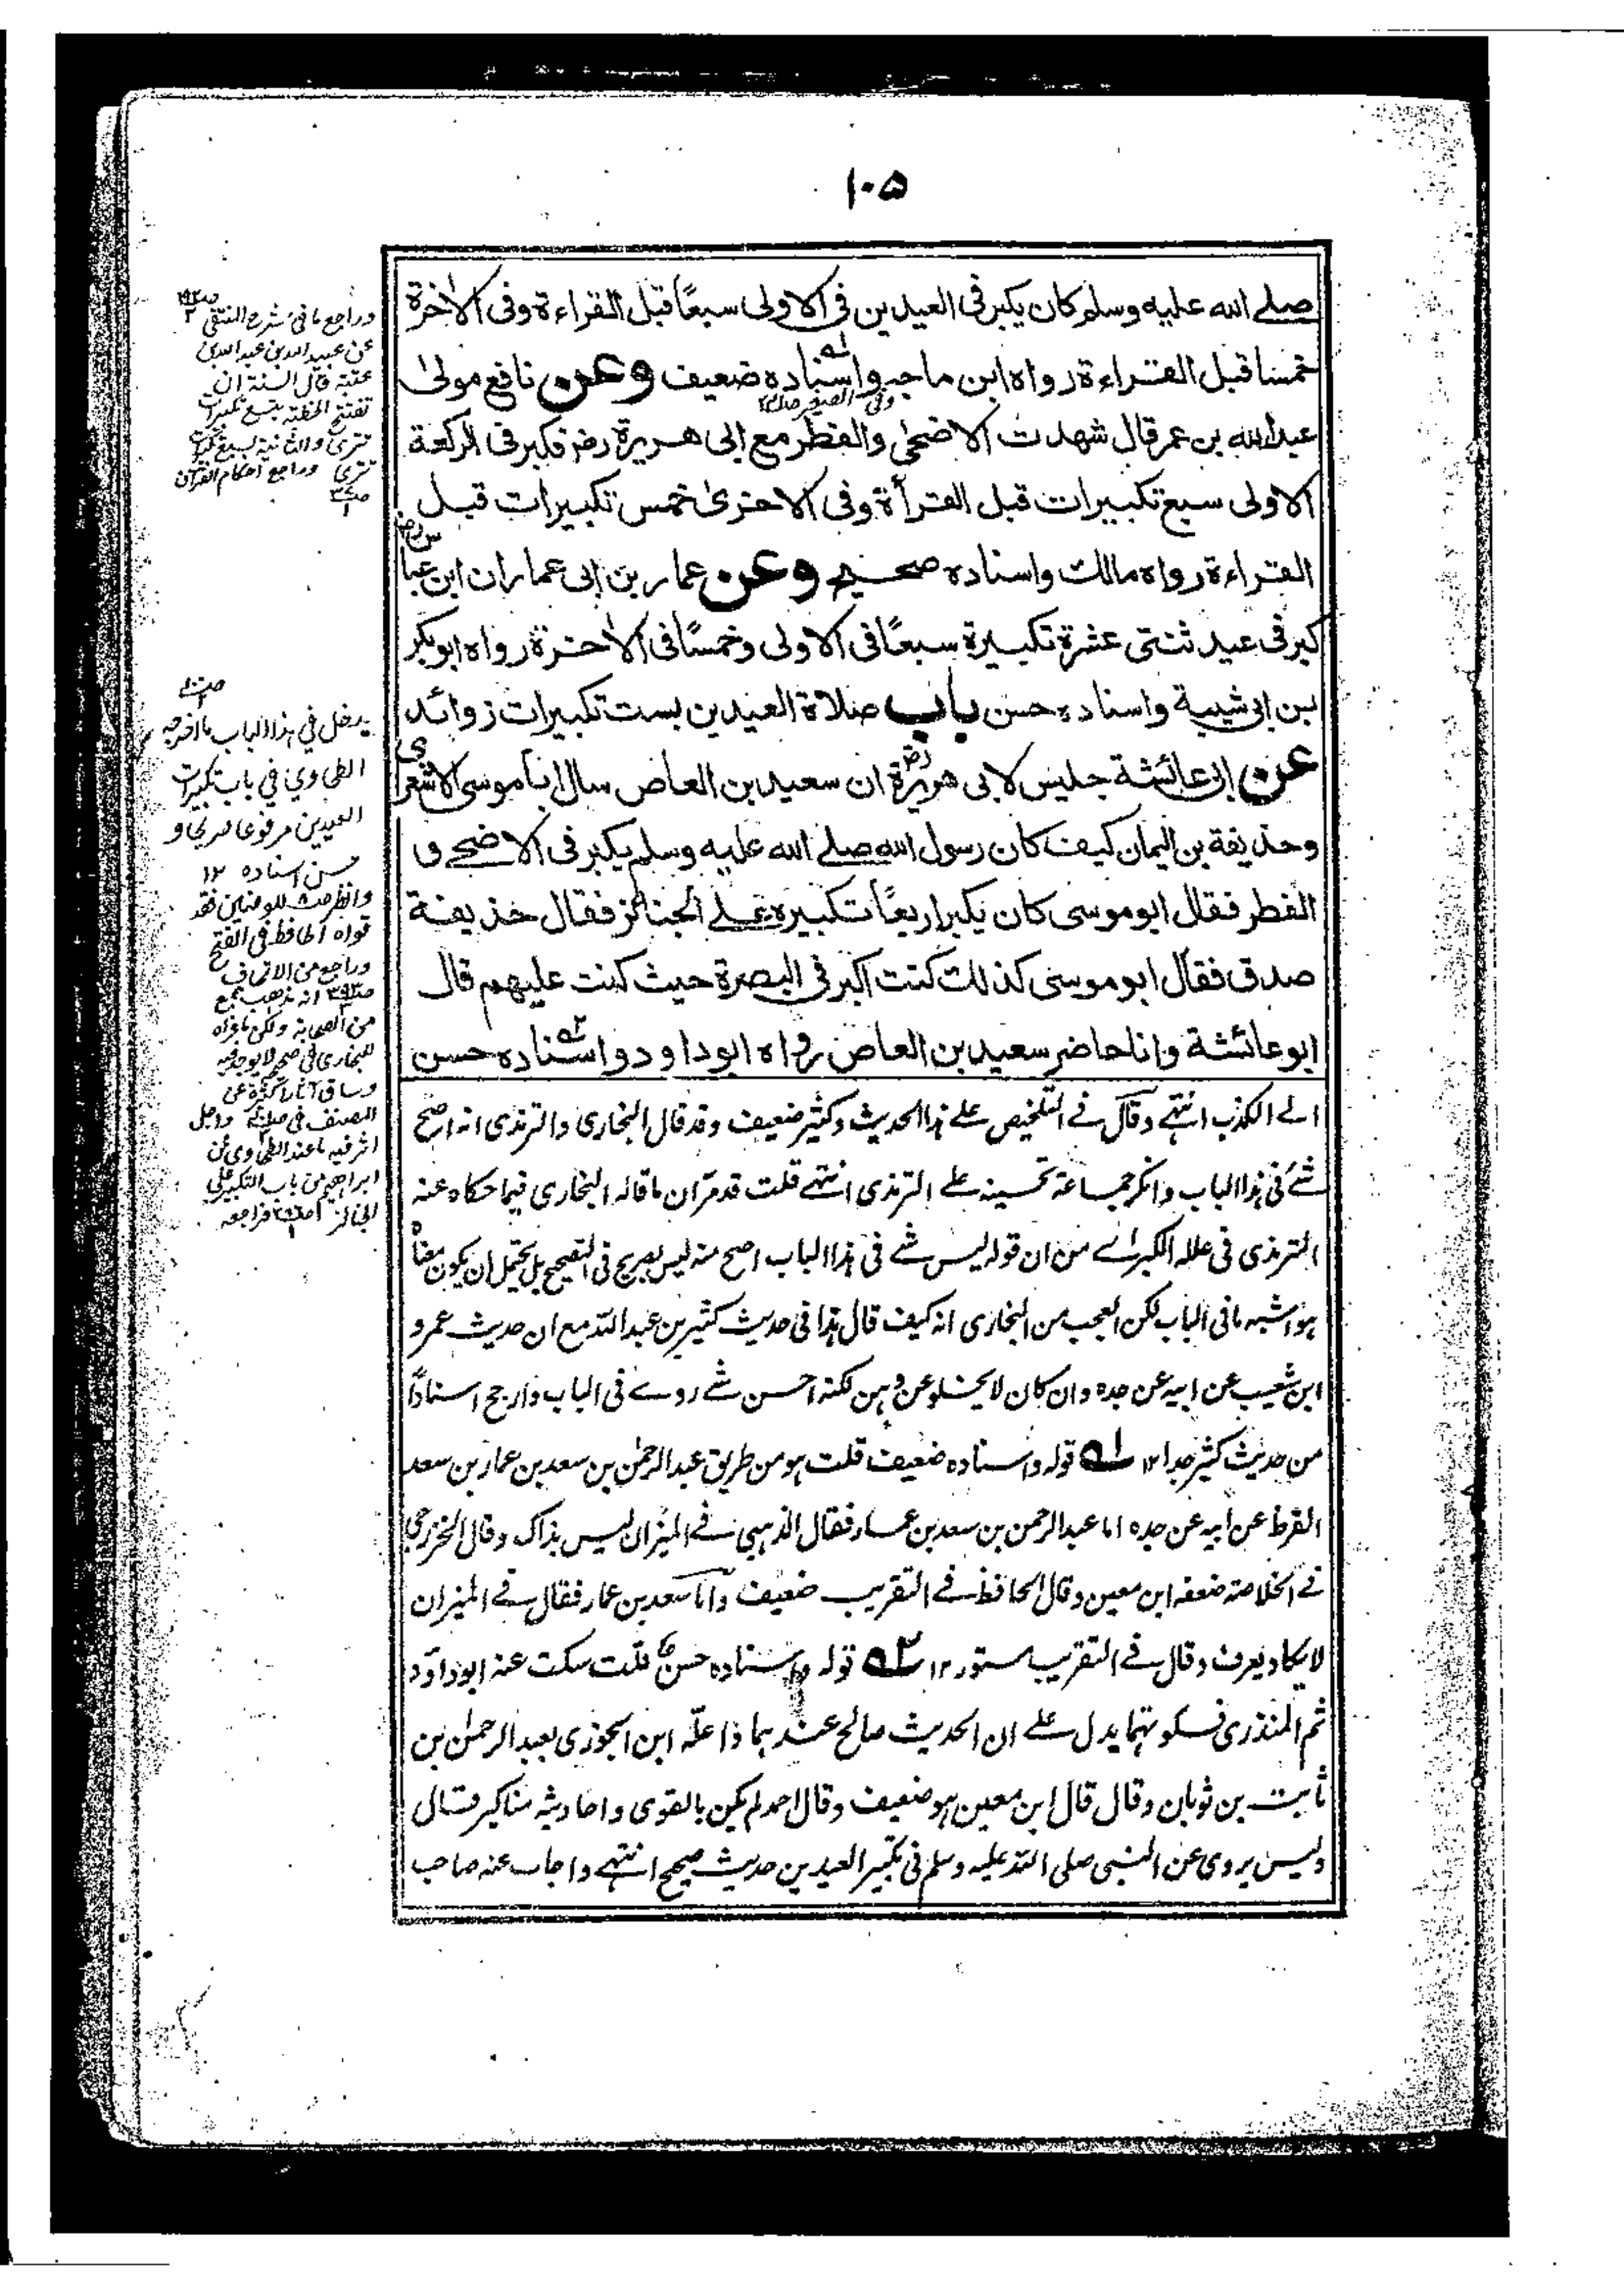 ١٠۵
صلے الله عليه وسلم كان يكبر فى العيدين فى الاولى سبعًا قبل القراءة وفى الاٰخرة
خمسا قبل القراءة رواه ابن ماجه واسناده ضعيف وعن نافع مولىٰ
عبد الله بن عمر قال شهدت الاضحٰى والفطر مع ابى هريرة رض فكبر فى الركعة
الاولى سبع تكبيرات قبل القرأة وفى الاخرىٰ خمس تكبيرات قبل
القراءة رواه مالك واسناده صحيح وعن عمار بن ابى عمار ان ابن عباس رض
كبر فى عيد ثنتى عشرة تكبيرة سبعًا فى الاولى وخمسًا فى الاٰخرة رواه ابو بكر
بن ابى شيبة واسناده حسن باب صلاة العيدين بست تكبيرات زوائد
عن ابى عائشة جليس لابى هريرة رض ان سعيد بن العاص سال ابا موسى الاشعرى
وحذيفة بن اليمان كيف كان رسول الله صلے الله عليه وسلم يكبر فى الاضحے و
الفطر فقال ابو موسى كان يكبر اربعًا تكبيره علے الجنائز فقال حذيفة
صدق فقال ابو موسى كذلك كنت اكبر فى البصرة حيث كنت عليهم قال
ابو عائشة وانا حاضر سعيد بن العاص رواه ابو داود واسناده حسن
الے الكذب انتہے وقال فے التلخيص علے ہذا الحديث وكثير ضعيف وقد قال البخارى والترمذى انہ اصح
شئے فى ہذا الباب وانكر جماعة تحسينہ علے الترمذى انتہے قلت قد مر ان ما قالہ البخارى فيما حكاه عنہ
الترمذى فى عللہ الكبرائے من ان قولہ ليس شے فى ہذا الباب اصح منہ ليس بصريح فى التصحيح بل يحتمل ان يكون معناه
ہو اشبہ ما فى الباب لكن العجب من البخارى انہ كيف قال ہذا فى حديث كثير بن عبد اللہ مع ان حديث عمرو
ابن شعيب عن ابيہ عن جده وان كان لا يخلو عن وہن لكنہ احسن شے روے فى الباب وارجح اسنادًا
من حديث كثير جدا ١٢ لـه قولہ واسناده ضعيف قلت ہو من طريق عبد الرحمٰن بن سعد بن عمار بن سعد
القرظ عن ابيہ عن جده اما عبد الرحمن بن سعد بن عمار فقال الذہبى فے الميزان ليس بذاك وقال الخزرجى
فے الخلاصة ضعفہ ابن معين وقال الحافظ فے التقريب ضعيف واما سعد بن عمار فقال فے الميزان
لا يكاد يعرف وقال فے التقريب مستور ١٢ لـه قولہ واسناده حسن قلت سكت عنہ ابو داؤد
ثم المنذرى فسكوتہما يدل علے ان الحديث صالح عندہما واعلّہ ابن الجوزى بعبد الرحمٰن بن
ثابت بن ثوبان وقال قال ابن معين ہو ضعيف وقال احمد لم يكن بالقوى واحاديثہ مناكير قال
وليس يروى عن النبى صلى اللہ عليہ وسلم فى تكبير العيدين حديث صحيح انتہے واجاب عنہ صاحب
وراجع ما فى شرح المنتقى
عن عبيد الله بن عبد الله بن
عتبة قال السنة ان
تفتتح الخطبة بتسع تكبيرات
تترى والثانية بسبع تكبيرات
تترى وراجع احكام القرآن
يدخل في هذا الباب ما اخرجه
الطحاوي في باب تكبيرات
العيدين مرفوعا صريحا و
حسن اسناده ١٢
قواه الحافظ فى الفتح
من الصحابة ولكن ما عزاه
للبخارى فى صحيحه لا يوجد فيه
وساق آثارا كثيرة عن
المصنف فى
اثر فيه ما عند الطحاوى عن
ابراهيم من باب التكبير على
الجنائز فراجعه